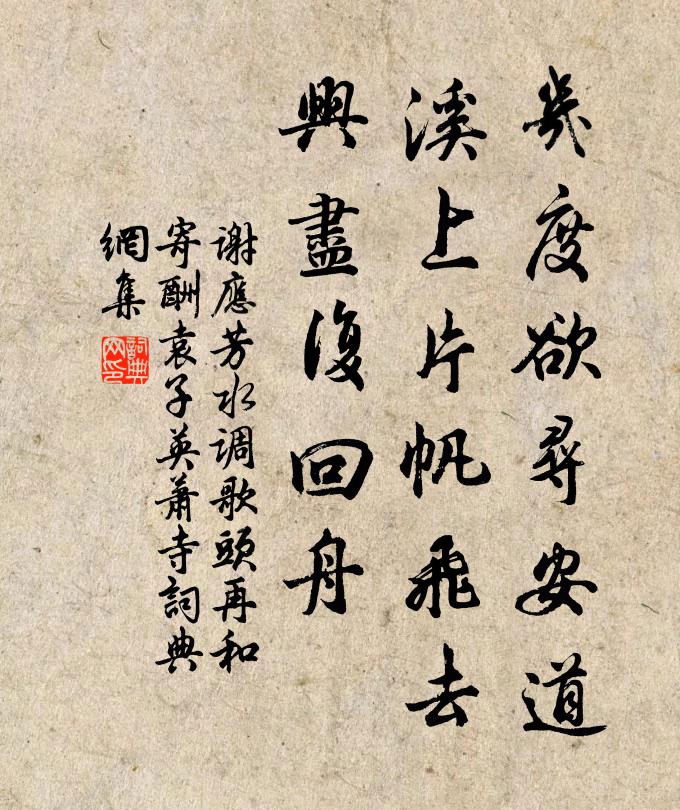 幾度欲尋安道
溪上片帆飛去
興盡復回舟
谢應芳水调歌頭再和
寄酬袁子英蕭寺詞典
網集
詞典網印